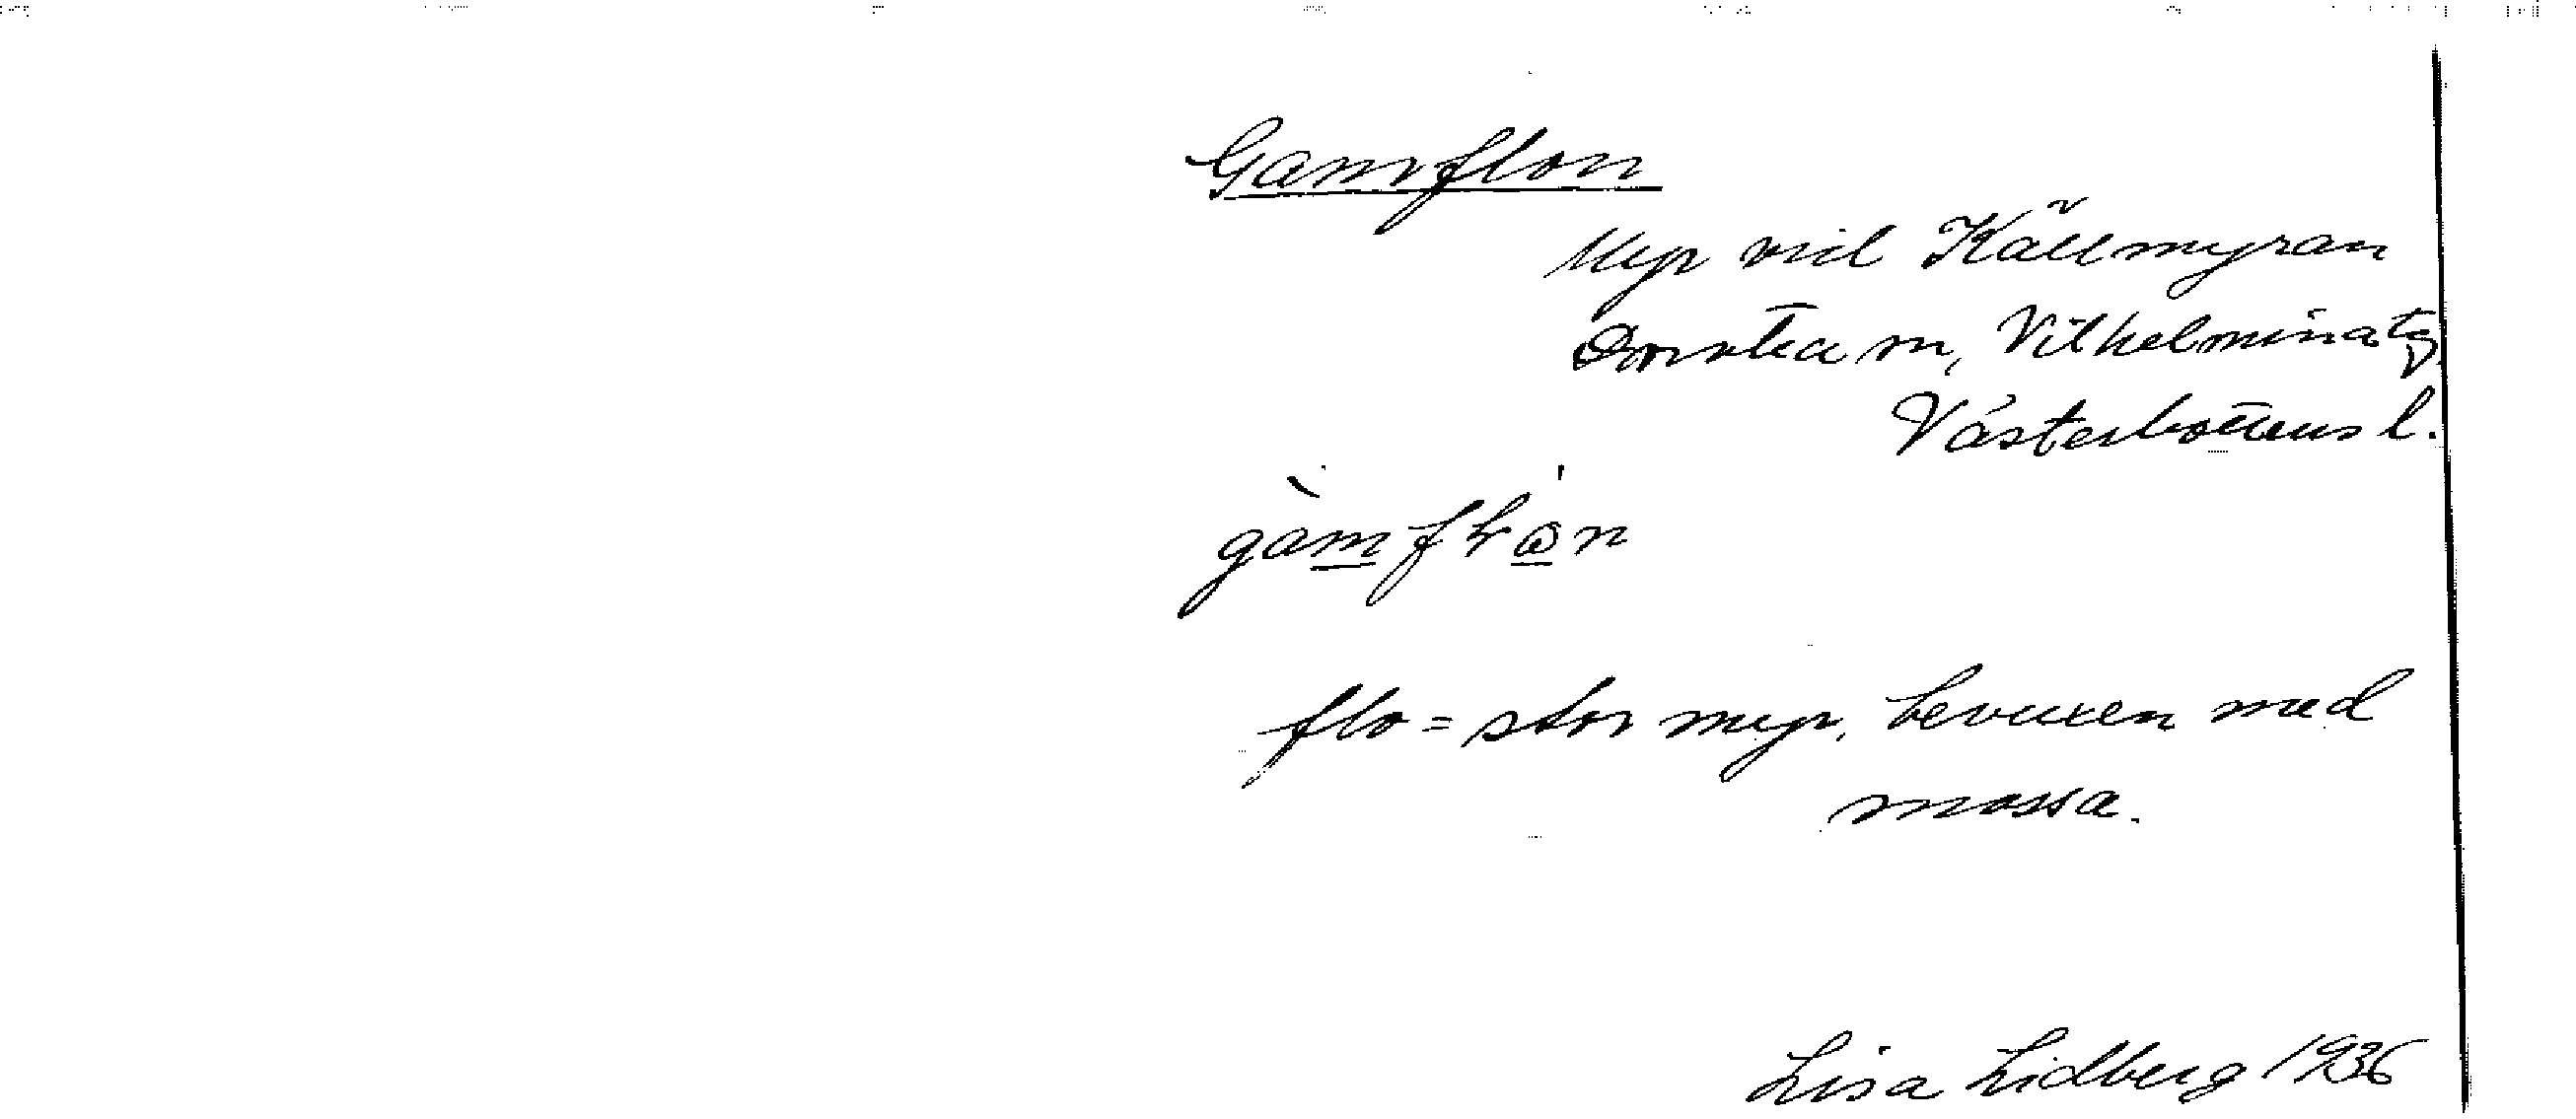 Gamflon
Myr vid Källmyran
Dorotea sn, Vilhelmina tg
Västerbottens l.
flo = stor myr, bevuxen med
mossa.
Lisa Lidberg 1936